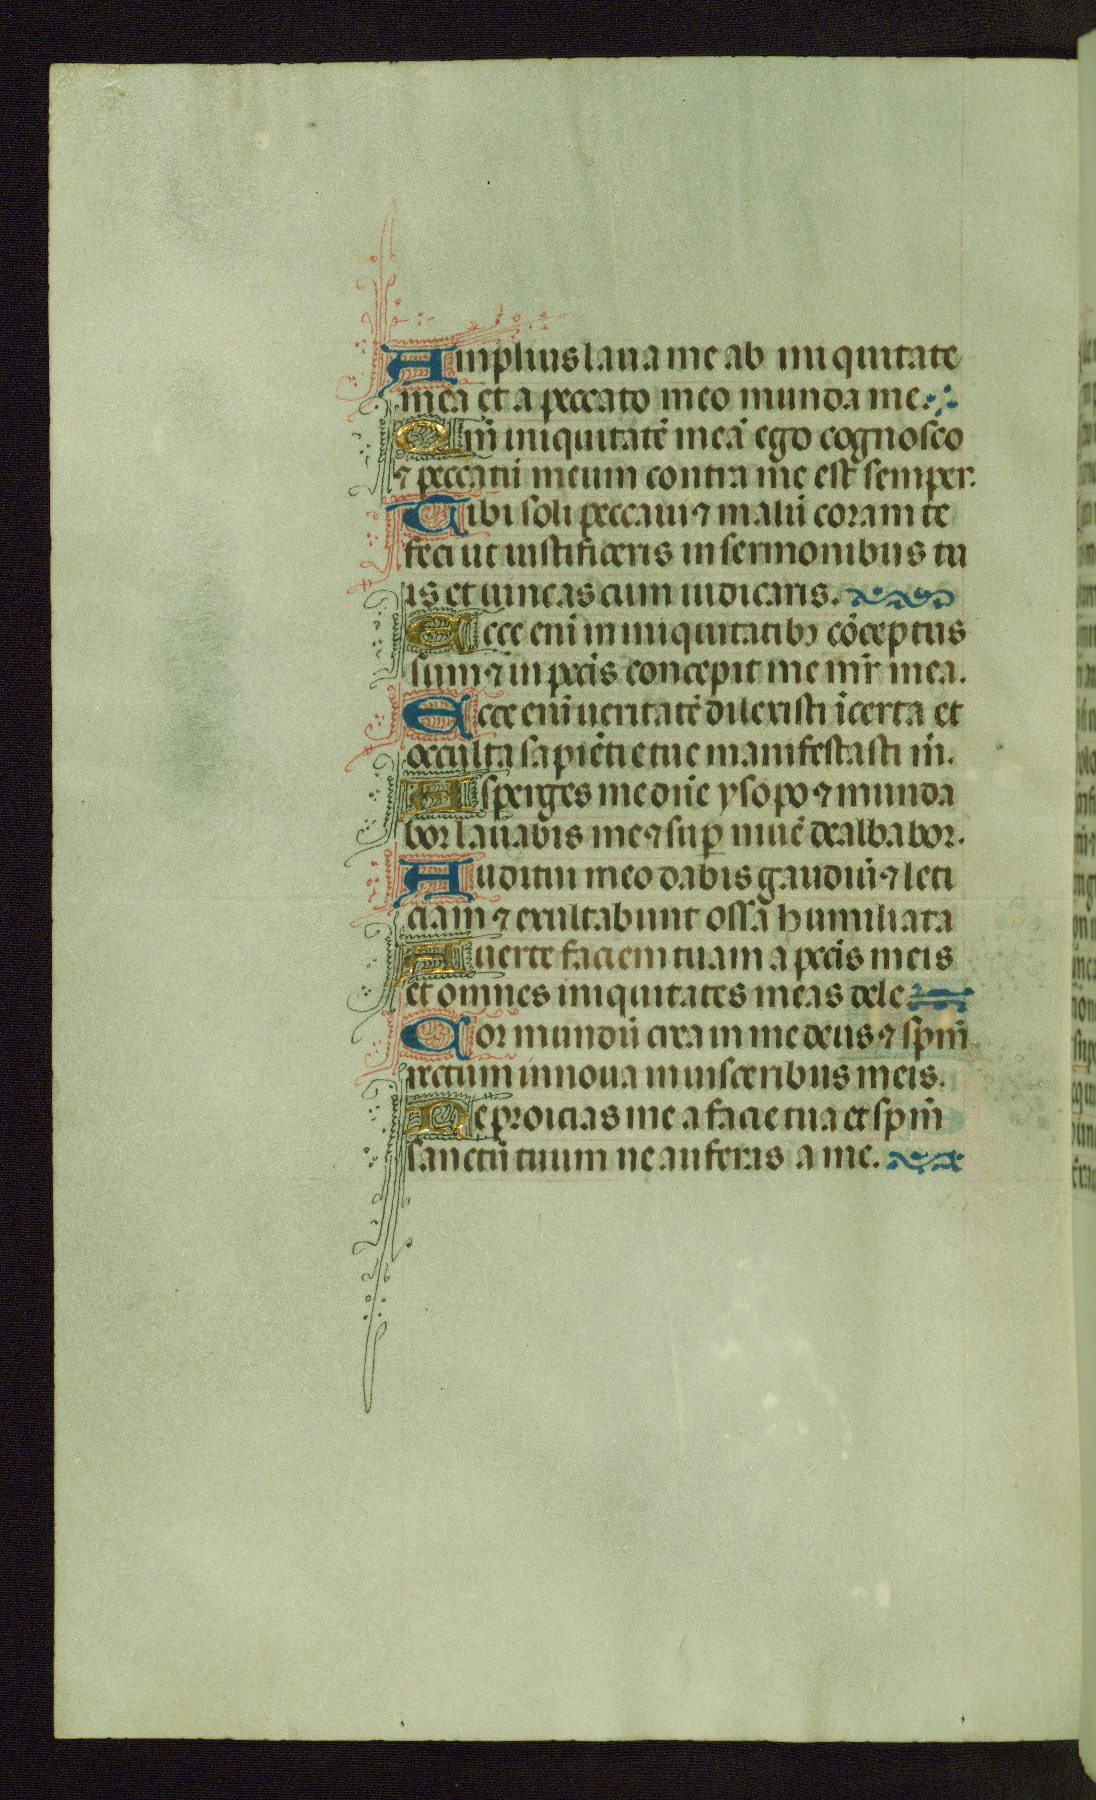 Amplius laua me ab iniquitate
mea et a peccato meo munda me.
Qm̄ iniquitatē meā ego cognosco
⁊ peccatū meum contra me est semper.
Tibi soli peccaui ⁊ malū coram te
feci ut iustificeris in sermonibus tu
is et uincas cum iudicaris.
Ecce eni in iniquitatibꝫ cōceptus
sum ⁊ in pccīs concepit me mr̄ mea.
Ecce enī ueritatē dilexisti īcerta et
occulta sapiētie tue manifestasti m̄.
Asperges me dn̄e ysopo ⁊ munda
bor lauabis me ⁊ sup niuē dealbabor.
Auditui meo dabis gaudiū ⁊ leti
ciam ⁊ exultabunt ossa humiliata
Auerte faciem tuam a pccīs meis
et omnes iniquitates meas dele
Cor mundū crea in me deus ⁊ spm̄
rectum innoua in uisceribus meis.
Ne proicias me a facie tua et spm̄
sanctū tuum ne auferas a me.